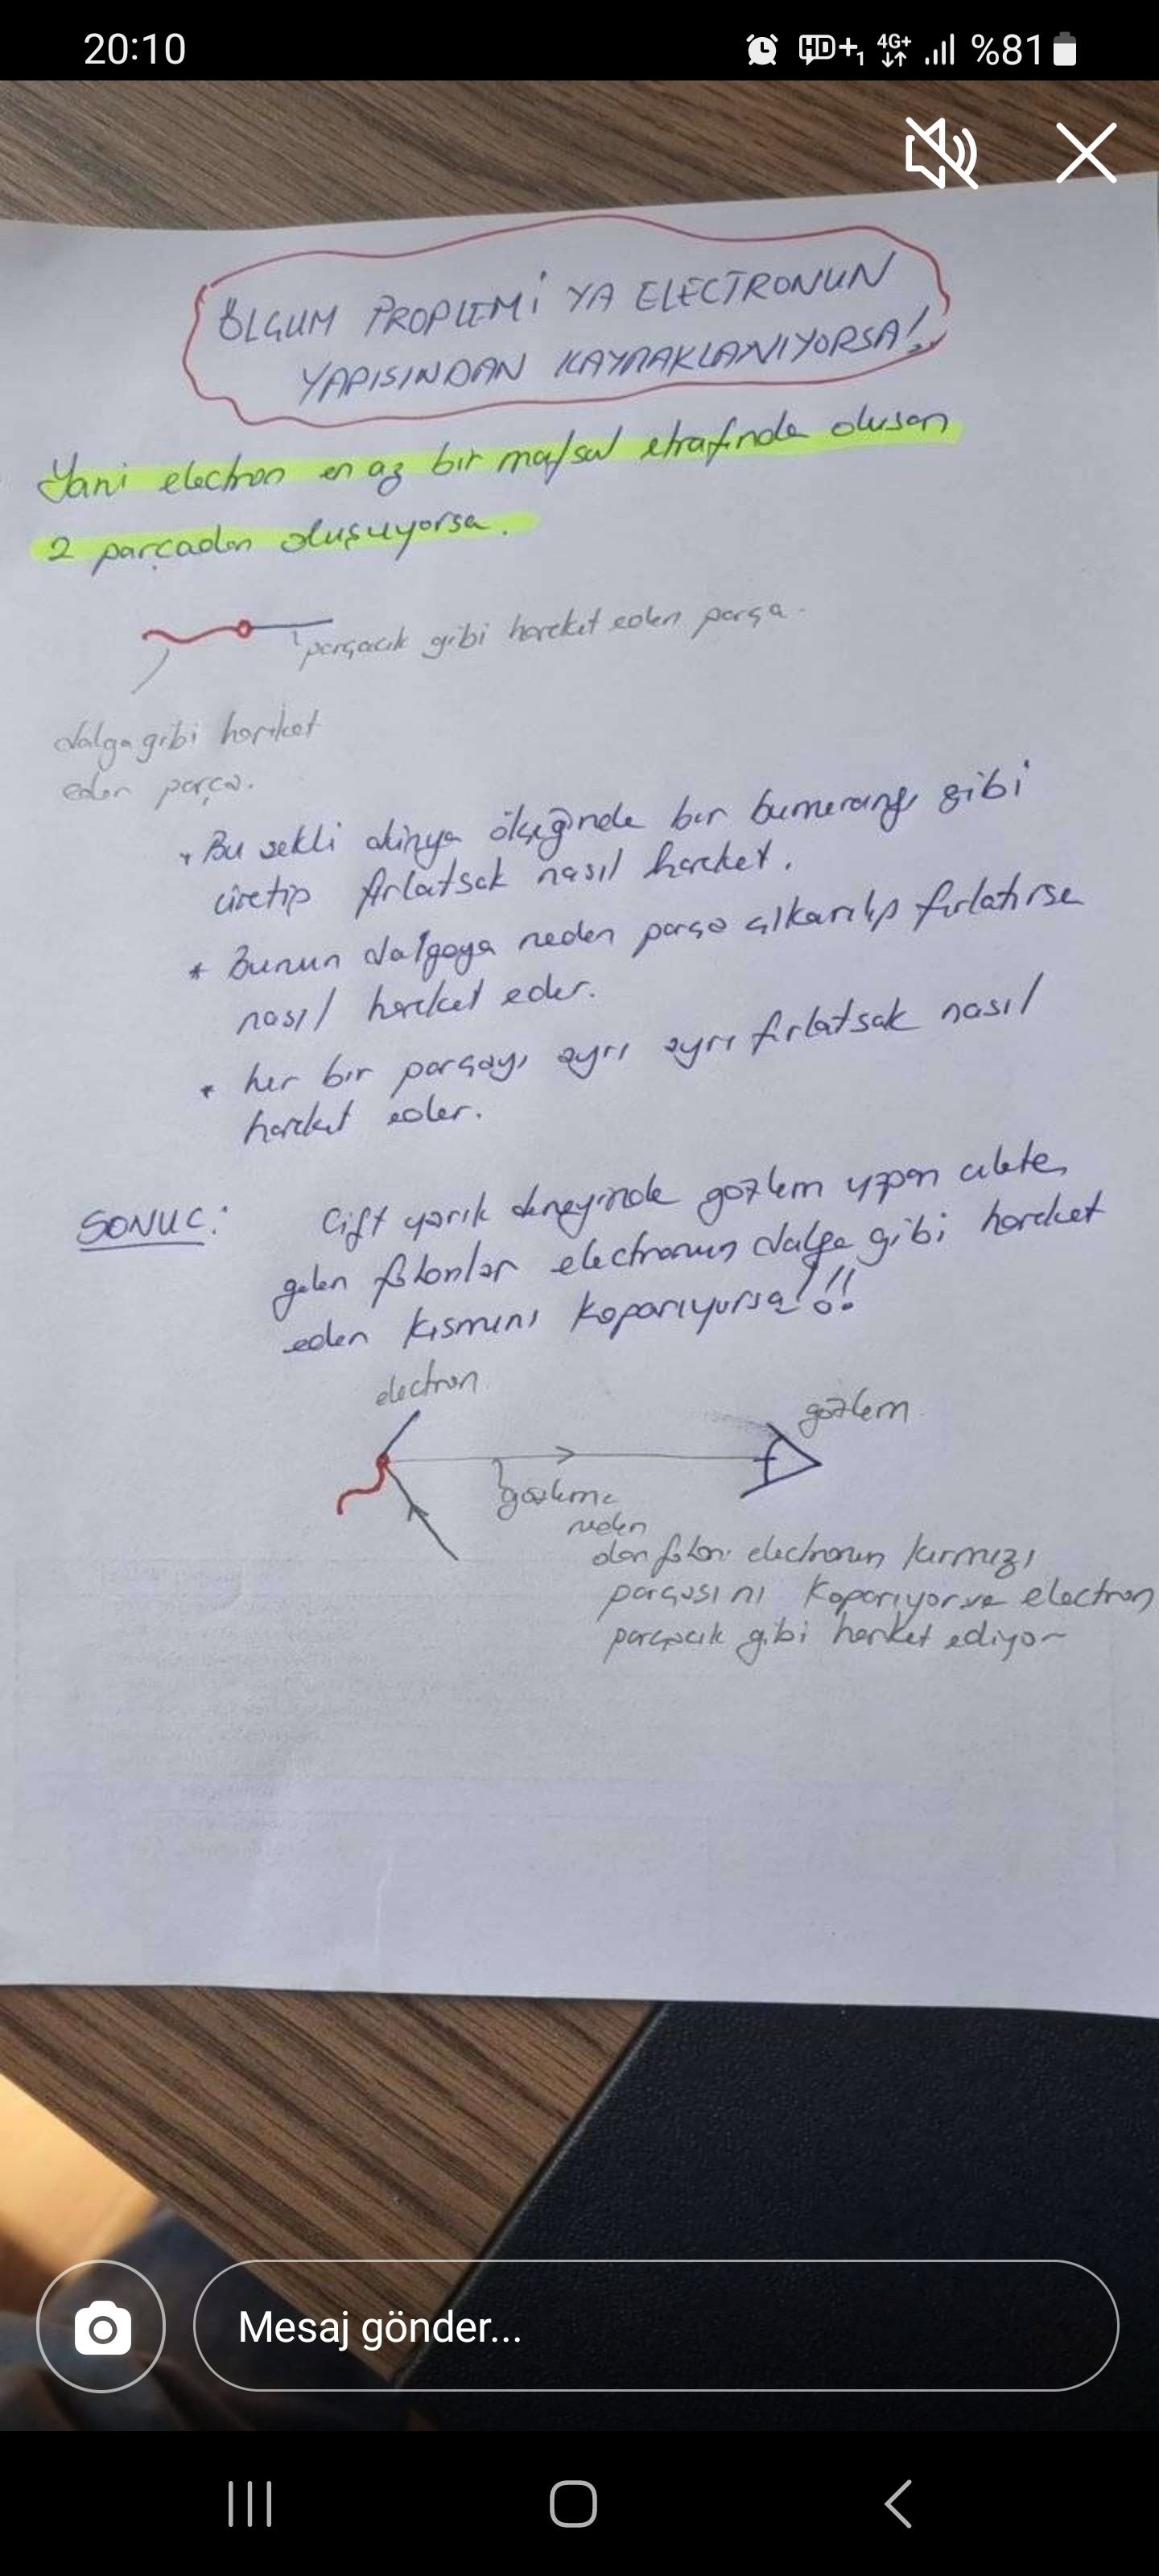 20:10
HD+1 4G+ %81
ÖLÇUM PROPLEMİ YA ELECTRONUN
YAPISINDAN KAYNAKLANIYORSA!..
Yani electron en az bir mafsal etrafında olusan
2 parçadan oluşuyorsa.
parçacık gibi hareket eden parça.
dalga gibi hareket
eden parça.
* Bu sekli dünya ölçeğinde bir bumerang gibi
üretip fırlatsak nasıl hareket.
* Bunun dalgaya neden parça çıkarılıp fırlatırsa
nasıl hareket eder.
* her bir parçayı ayrı ayrı fırlatsak nasıl
hareket eder.
SONUC: Cift yarık deneyinde gozlem yapan alete,
gelen fotonlar electronun dalga gibi hareket
eden kısmını koparıyorsa!!!
electron
gozlem
gozleme
neden
olan foton electronun kırmızı
parçasını koparıyor ve electron
parçacık gibi hareket ediyor
Mesaj gönder...